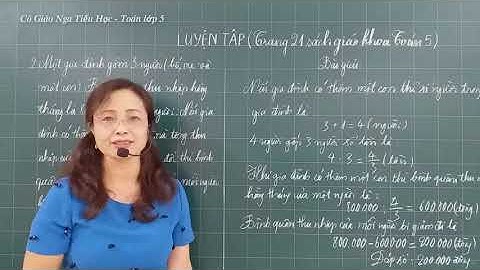 Cô Giáo Nga Tiểu Học - Toán lớp 5
LUYỆN TẬP (Trang 21 sách giáo khoa Toán 5)
2. Một gia đình gồm 3 người (bố, mẹ và
một con). B thu nhập hàng
tháng là người. Nếu gia
đình có thêm và tổng thu
nhập thì bình
quân mỗi người
Bài giải
Nếu gia đình có thêm một con thì số người trong
gia đình là
3 + 1 = 4 (người)
4 người gấp 3 người số lần là
4 : 3 = 4/3 (lần)
Khi gia đình có thêm một con thì bình quân thu nhập
hàng tháng của một người là:
800.000 : 4/3 = 600.000 (đồng)
Bình quân thu nhập của mỗi người bị giảm đi là
800.000 - 600.000 = 200.000 (đồng)
Đáp số: 200.000 đồng